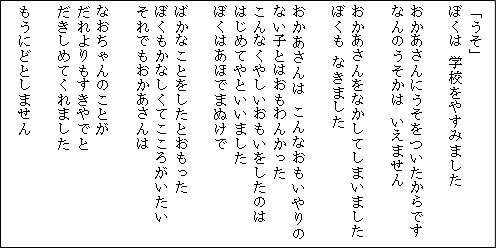 「うそ」
ぼくは 学校をやすみました
おかあさんにうそをついたからです
なんのうそかは いえません
おかあさんをなかしてしまいました
ぼくも なきました
おかあさんは こんなおもいやりの
ない子とはおもわんかった
こんなくやしいおもいをしたのは
はじめてやといいました
ぼくはあほでまぬけで
ばかなことをしたとおもった
ぼくもかなしくてこころがいたい
それでもおかあさんは
なおちゃんのことが
だれよりもすきやでと
だきしめてくれました
もうにどとしません